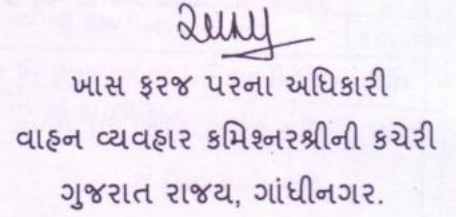 ખાસ ફરજ પરના અધિકારી
વાહન વ્યવહાર કમિશ્નરશ્રીની કચેરી
ગુજરાત રાજય, ગાંધીનગર.